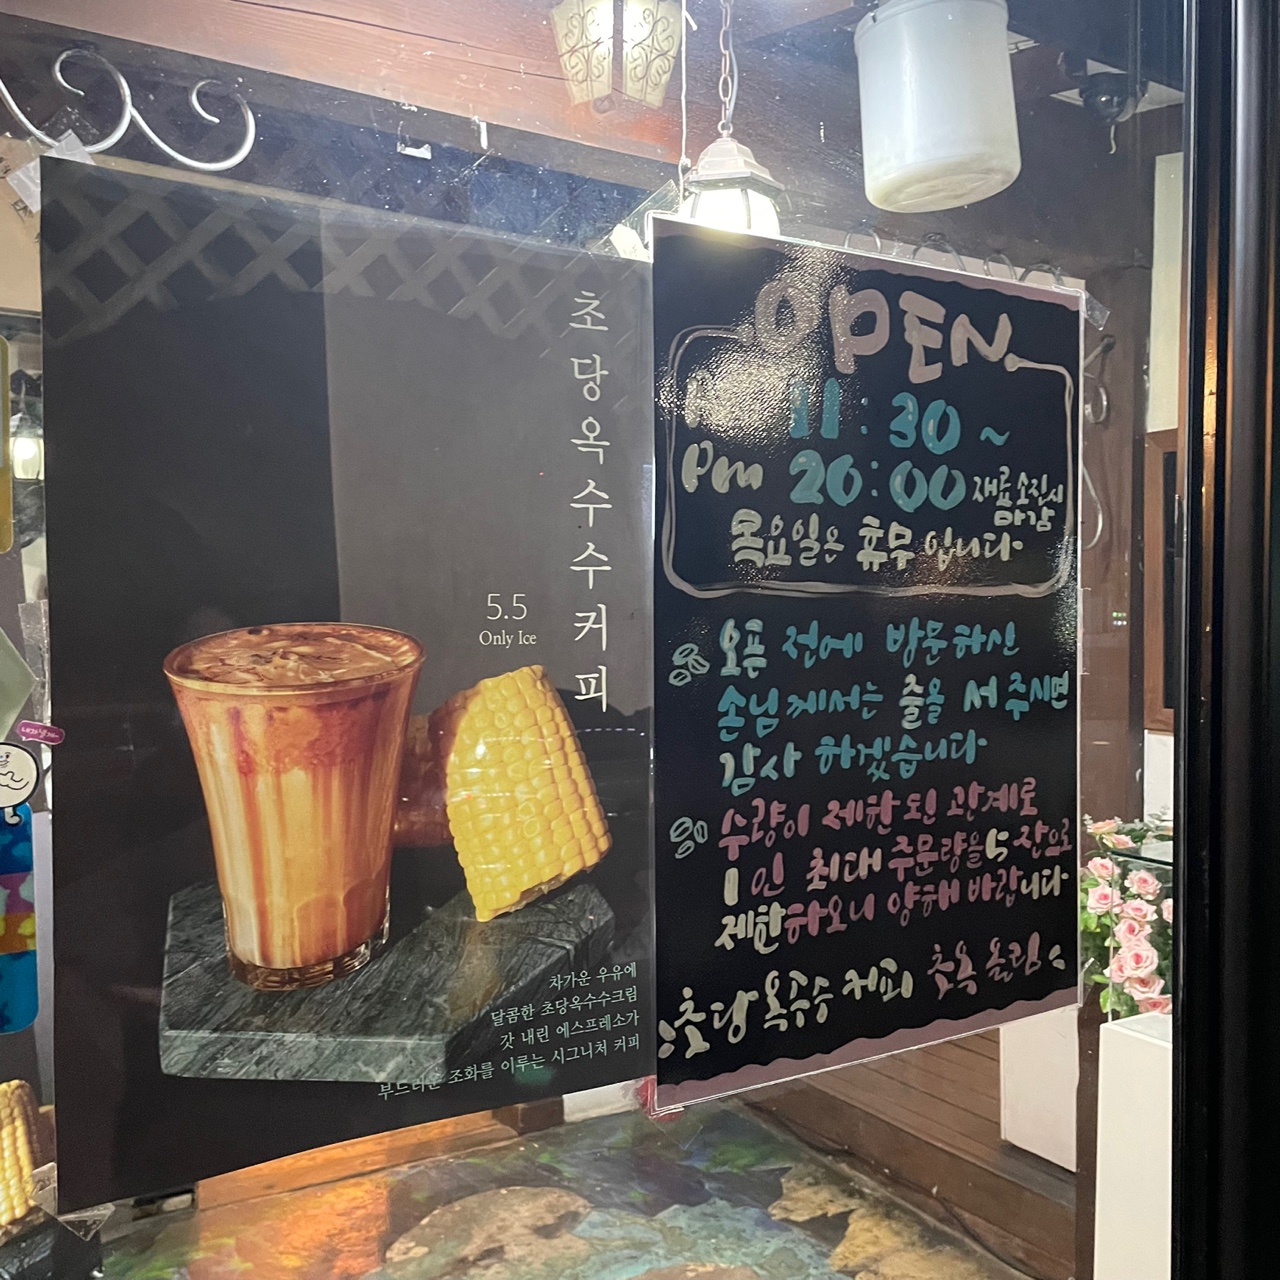 초당옥수수커피
5.5
Only Ice
차가운 우유에
달콤한 초당옥수수크림
갓 내린 에스프레소가
부드러운 조화를 이루는 시그니처 커피
OPEN
11:30~
Pm 20:00 재료소진시
마감
목요일은 휴무 입니다
오픈 전에 방문하신
손님께서는 줄을 서 주시면
감사 하겠습니다
수량이 제한된 관계로
1인 최대 주문량을 5잔으로
제한하오니 양해 바랍니다
초당옥수수커피 초옥 올림